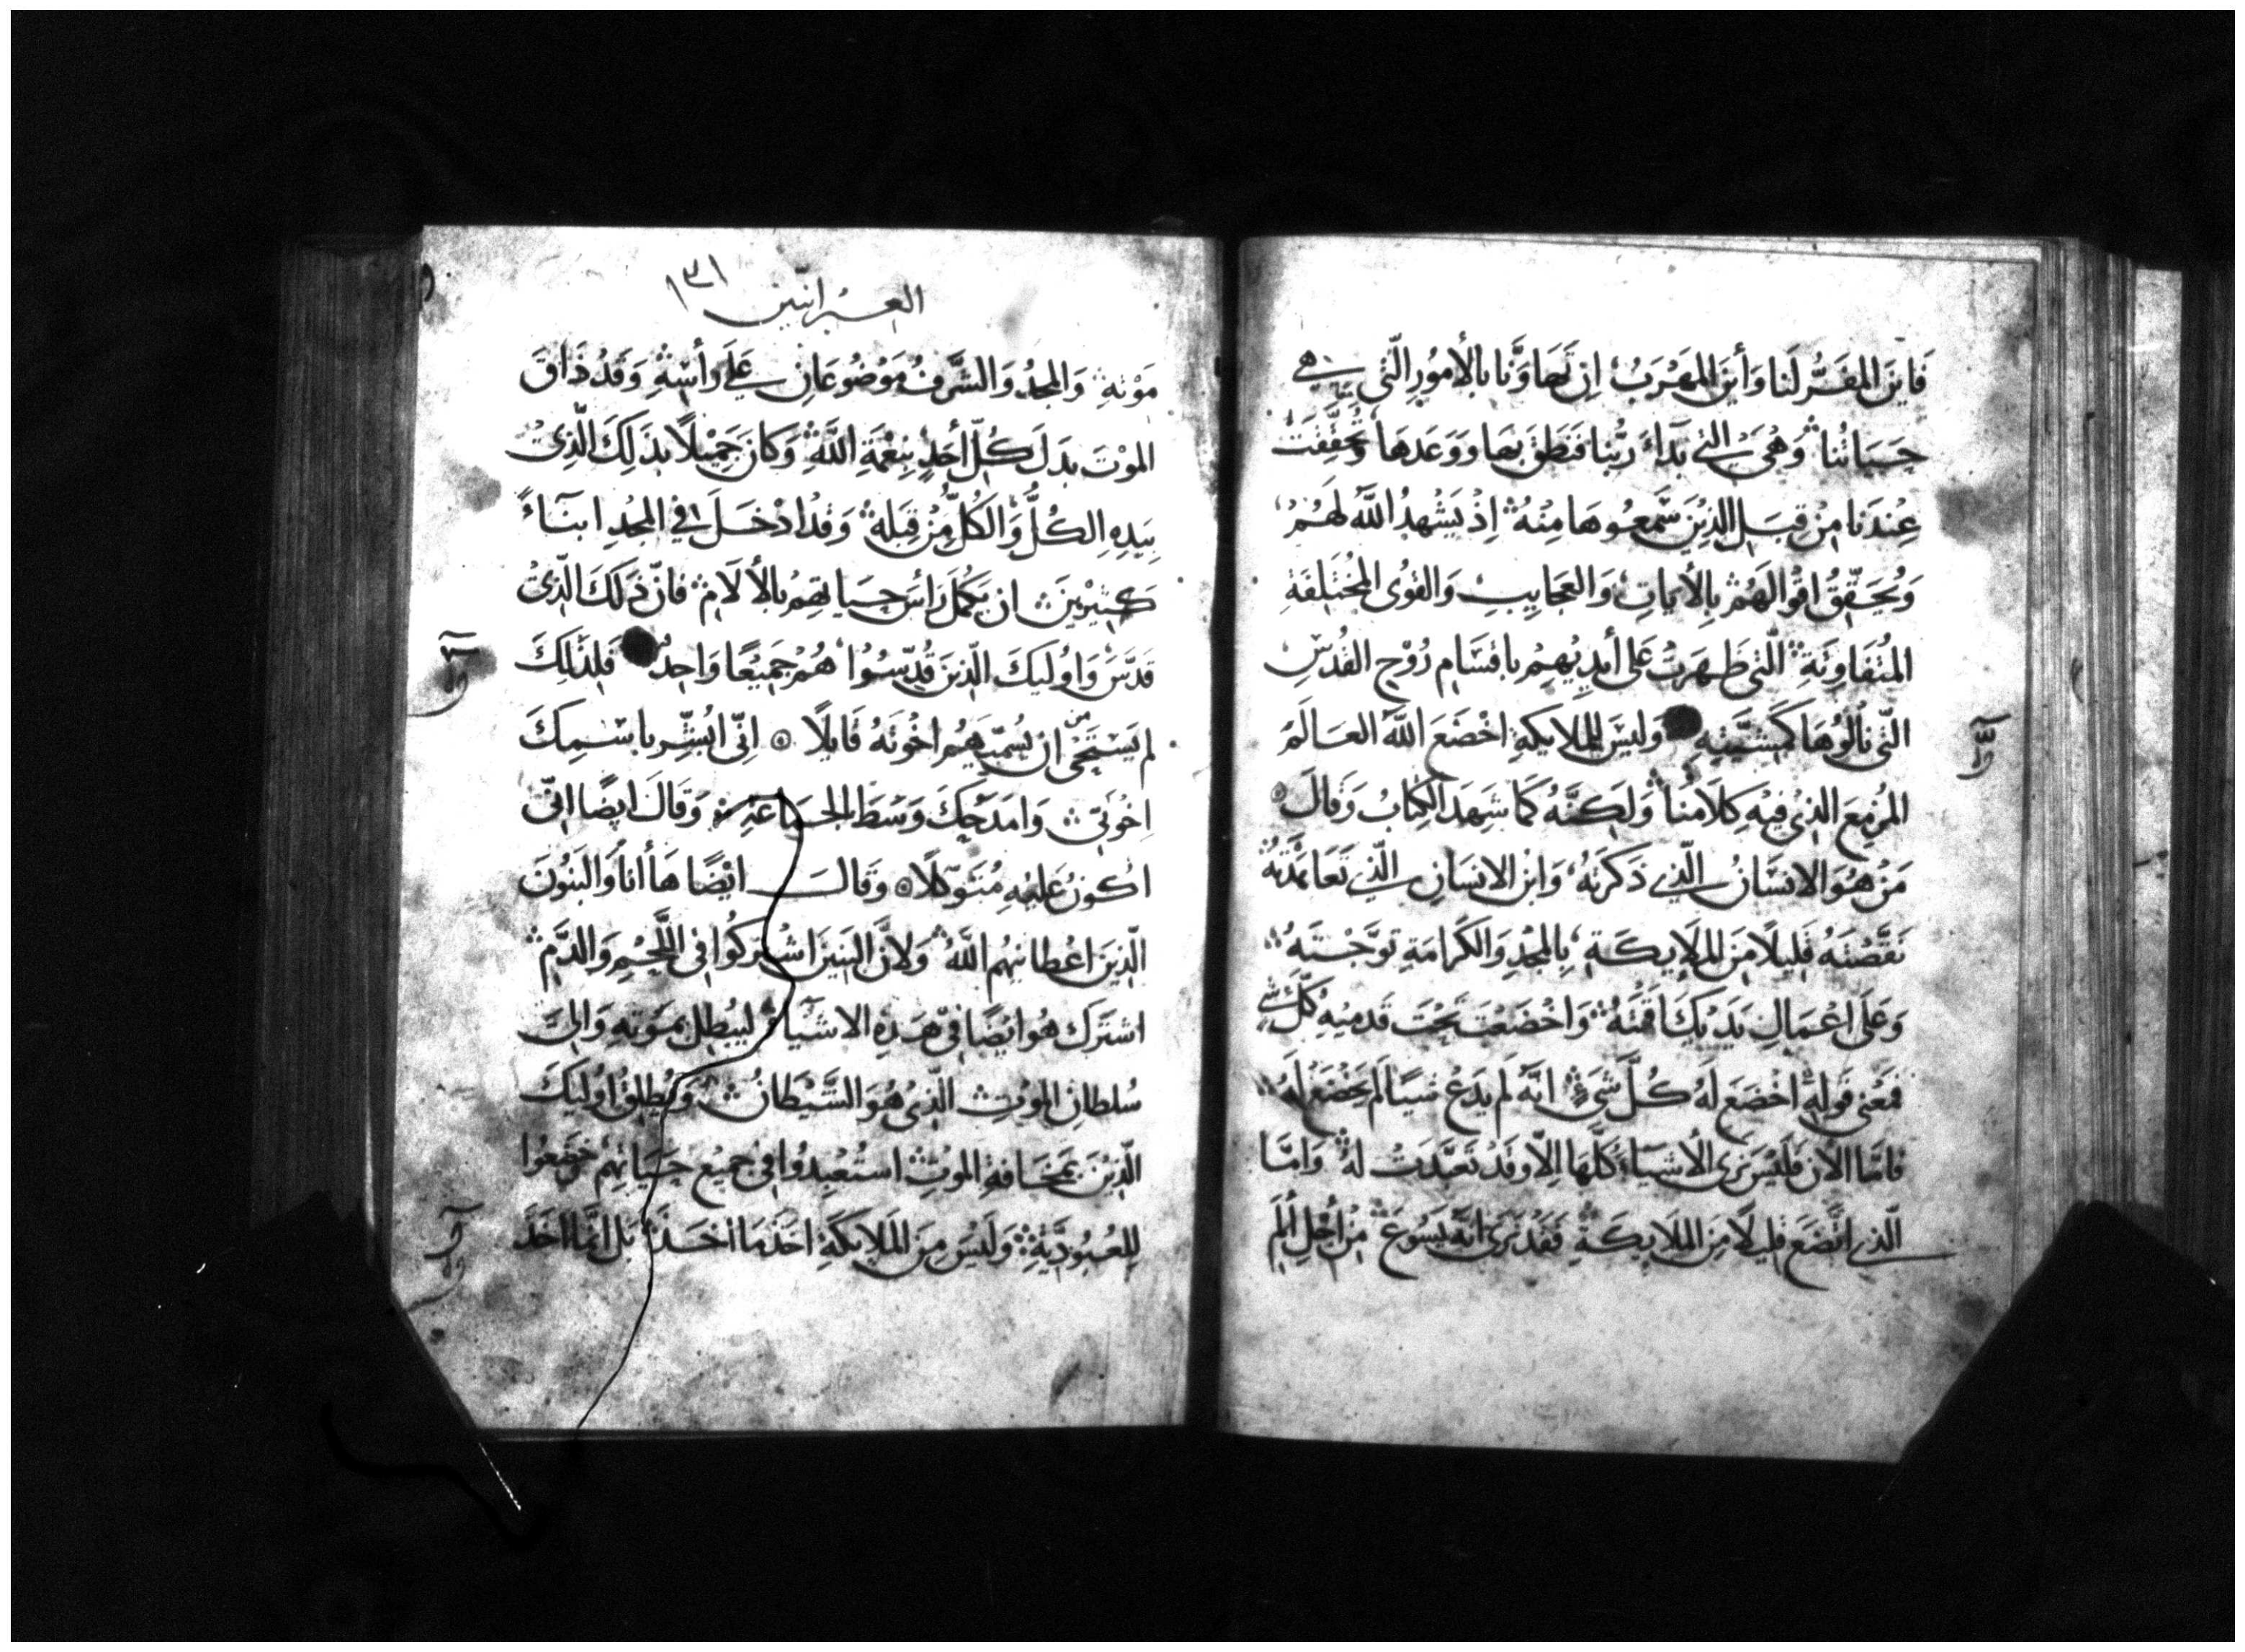 فَايْنَ المفَرُّ لَنا وَأينَ المَهْرَبُ اِن تَهَاوَنَّا بالأمُورِ الّتي هي
حَيَاتُنا وَهُيَ التي بَدَاءَ رَبُّنا فَنَطَقَ بهَا ووَعَدهَا وَتحَقَّقَتْ
عِندَنا مِنْ قِبَلِ الذِينَ سَّمعُوهَا مِنْهُ اِذْ يَشْهدُ اللَّه لَهُمْ
وَيُحَقّقُ اقْوالَهُمْ بِالأيَاتِ وَالعَجَايبِ وَالقوُى المُخْتَلِفَةِ
المُتفَاوِتَةِ الّتي ظَهَرَتْ عَلى أيديْهِمْ باقسَام رُوْحِ القُدسِ
التّي نالوُهَا كمَشِيَّتِهِ وَليسَ لِلملايكةِ اخْضَعَ اللَّه العَالَمَ
المُزمِعَ الذيْ فيْهِ كِلَامُنا وَلَكِنَّهُ كمَا شَهِدَ الكِتابُ وَقالَ
مَنْ هُوَ الانسَانُ الّذي ذكَرْتَهُ وَابنُ الانِسَانِ الّذي تَعَاهَدْتَهُ
نَقَّصْتَهُ قَلِيلًا مِنَ الملَايكَةِ بِالمَجْدِ وَالكَرامَةِ توَّجْتَهُ
وَعَلَى اعْمَالِ يَدَيْكَ اَقَمْتَهُ وَاخْضَعْتَ تحْتَ قَدَميْهِ كُلَّ شي
فمَعْنى قَولِهِ اخْضَعَ لَهُ كُلَّ شَيءٍ انَّهُ لَم يَدَعْ شَيًا لَم يَخْضَعْ لَهُ
فامّا الآنَ فلَيْسَ نَرى الأشيَاءَ كلَّهَا اِلّا وقَدْ تعَبَّدَتْ لَهُ وَامّا
الّذي اتّضَعَ قلِيلًا مِنَ الملَايكَةِ فقَدْ نَرَى انَّهُ يَسُوعَ مِنْ أجْلِ ألَمِ
العبرانيين ١٣١
مَوْتهِ وَالمَجْدُ وَالشَّرفُ مَوْضُوعَانِ عَلَى رأسِهِ وَقَدْ ذَاقَ
الموْتَ بدَلَ كُلّ أحَدٍ بِنِعْمَةِ اللَّهِ وَكانَ جَمِيْلًا بذَلِكَ الّذِيْ
بيَدِهِ الكُلُّ وَالكُلُّ مِنْ قِبَلهِ وَقدْ ادْخَلَ فِي المَجْدِ ابنَاءً
كثِيرِينَ ان يَكمّلَ رَاسَ حيَاتِهمْ بالألَامِ فانّ ذَلكَ الّذِيْ
قدَّسَ وَاوُليكَ الّذينَ قُدّسُوا هُمْ جَمِيْعًا وَاحِدٌ فَلِذَلِكَ
لم يَسْتَحْيِ من ان يُسَمّيَهُم اخُوتَهُ قايلًا اِنّي ابُشّر باسْمِكَ
اِخوَتِي وَامدَحُكَ وَسَطَ الجَماعَةِ وَقَالَ ايضًا انّي
اكُونُ عَليْهِ مُتَوَكّلًا وَقَالَ ايْضًا هَا أناَ وَالبَنُونَ
الّذِينَ اعْطانيْهُم اللَّهُ وَلأنَّ البَنينَ اشْترَكُوا في اللَّحْمِ وَالدَّم
اشتَرَكَ هُو ايْضًا فيْ هَذِهِ الاشْيَاءِ ليُبْطِلَ بمَوْتهِ وَالِيَ
سُلطانِ الموْتِ الّذِيْ هُوَ الشَّيْطَانُ وَيُطلِقُ اوُليكَ
الّذِيْنَ بمَخَافةِ الموْتِ استُعْبِدُوا فيْ جميْعِ حَيَاتِهِمْ خَضَعُوا
لِلعُبُودِيَّةِ وَلَيْسَ مِنَ المَلايكَةِ اخَذَ مَا اخَذَ بَل انَّما اخَذَ